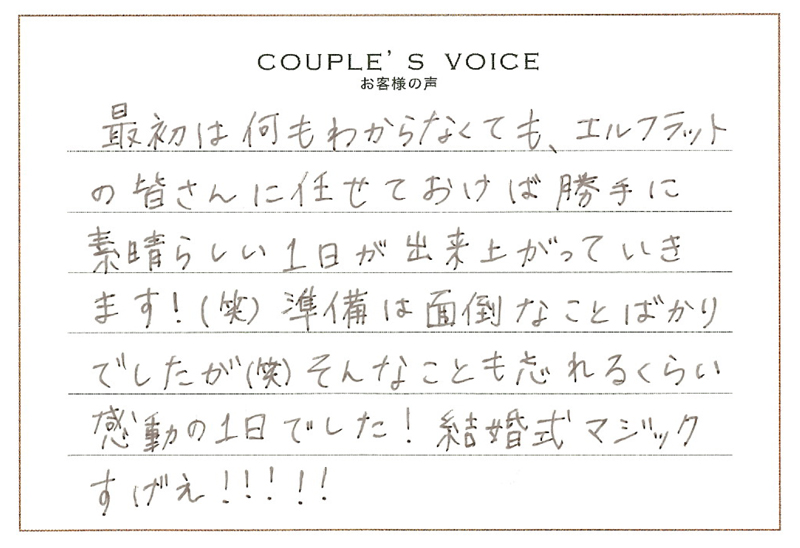 COUPLE'S VOICE
お客様の声
最初は何もわからなくても、エルフラット
の皆さんに任せておけば勝手に
素晴らしい1日が出来上がっていき
ます!(笑)準備は面倒なことばかり
でしたが(笑)そんなことも忘れるくらい
感動の1日でした!結婚式マジック
すげえ!!!!!